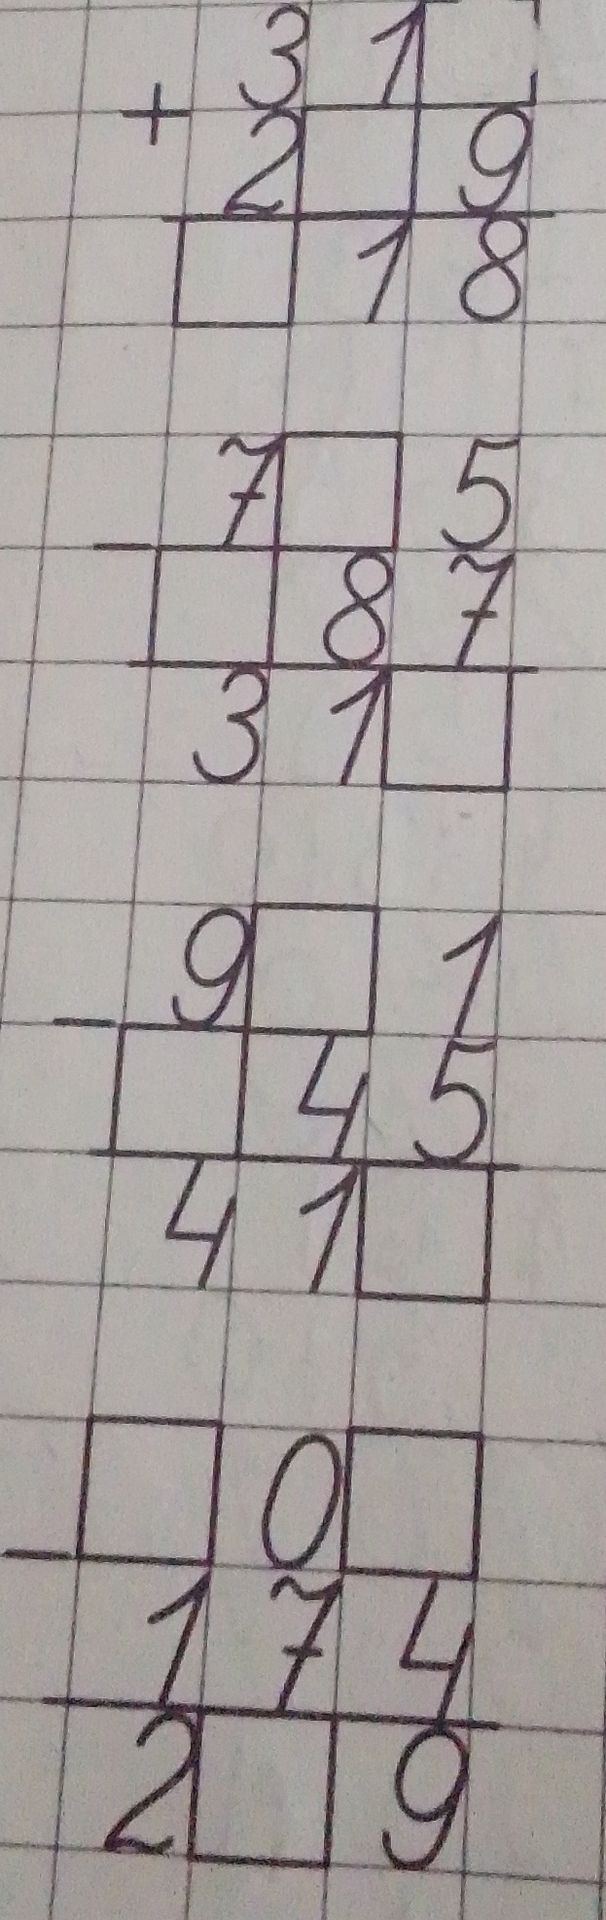 3 1 □
+
2 □ 9
□ 1 8
7 □ 5
−
□ 8 7
3 1 □
9 □ 1
−
□ 4 5
4 1 □
□ 0 □
−
1 7 4
2 □ 9